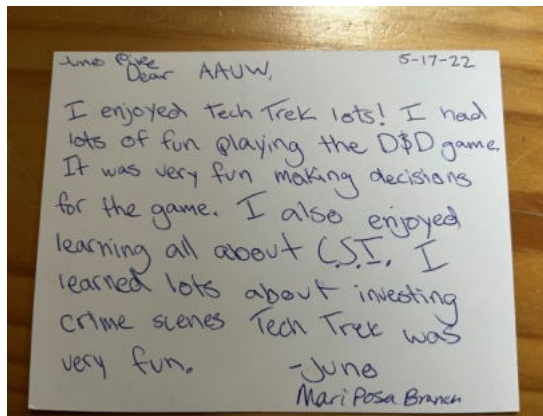 Juno
Dear AAUW,
5-17-22
I enjoyed Tech Trek lots! I had
lots of fun playing the D&D game.
It was very fun making decisions
for the game. I also enjoyed
learning all about C.S.I. I
learned lots about investing
crime scenes Tech Trek was
very fun.
-Juno
Mariposa Branch